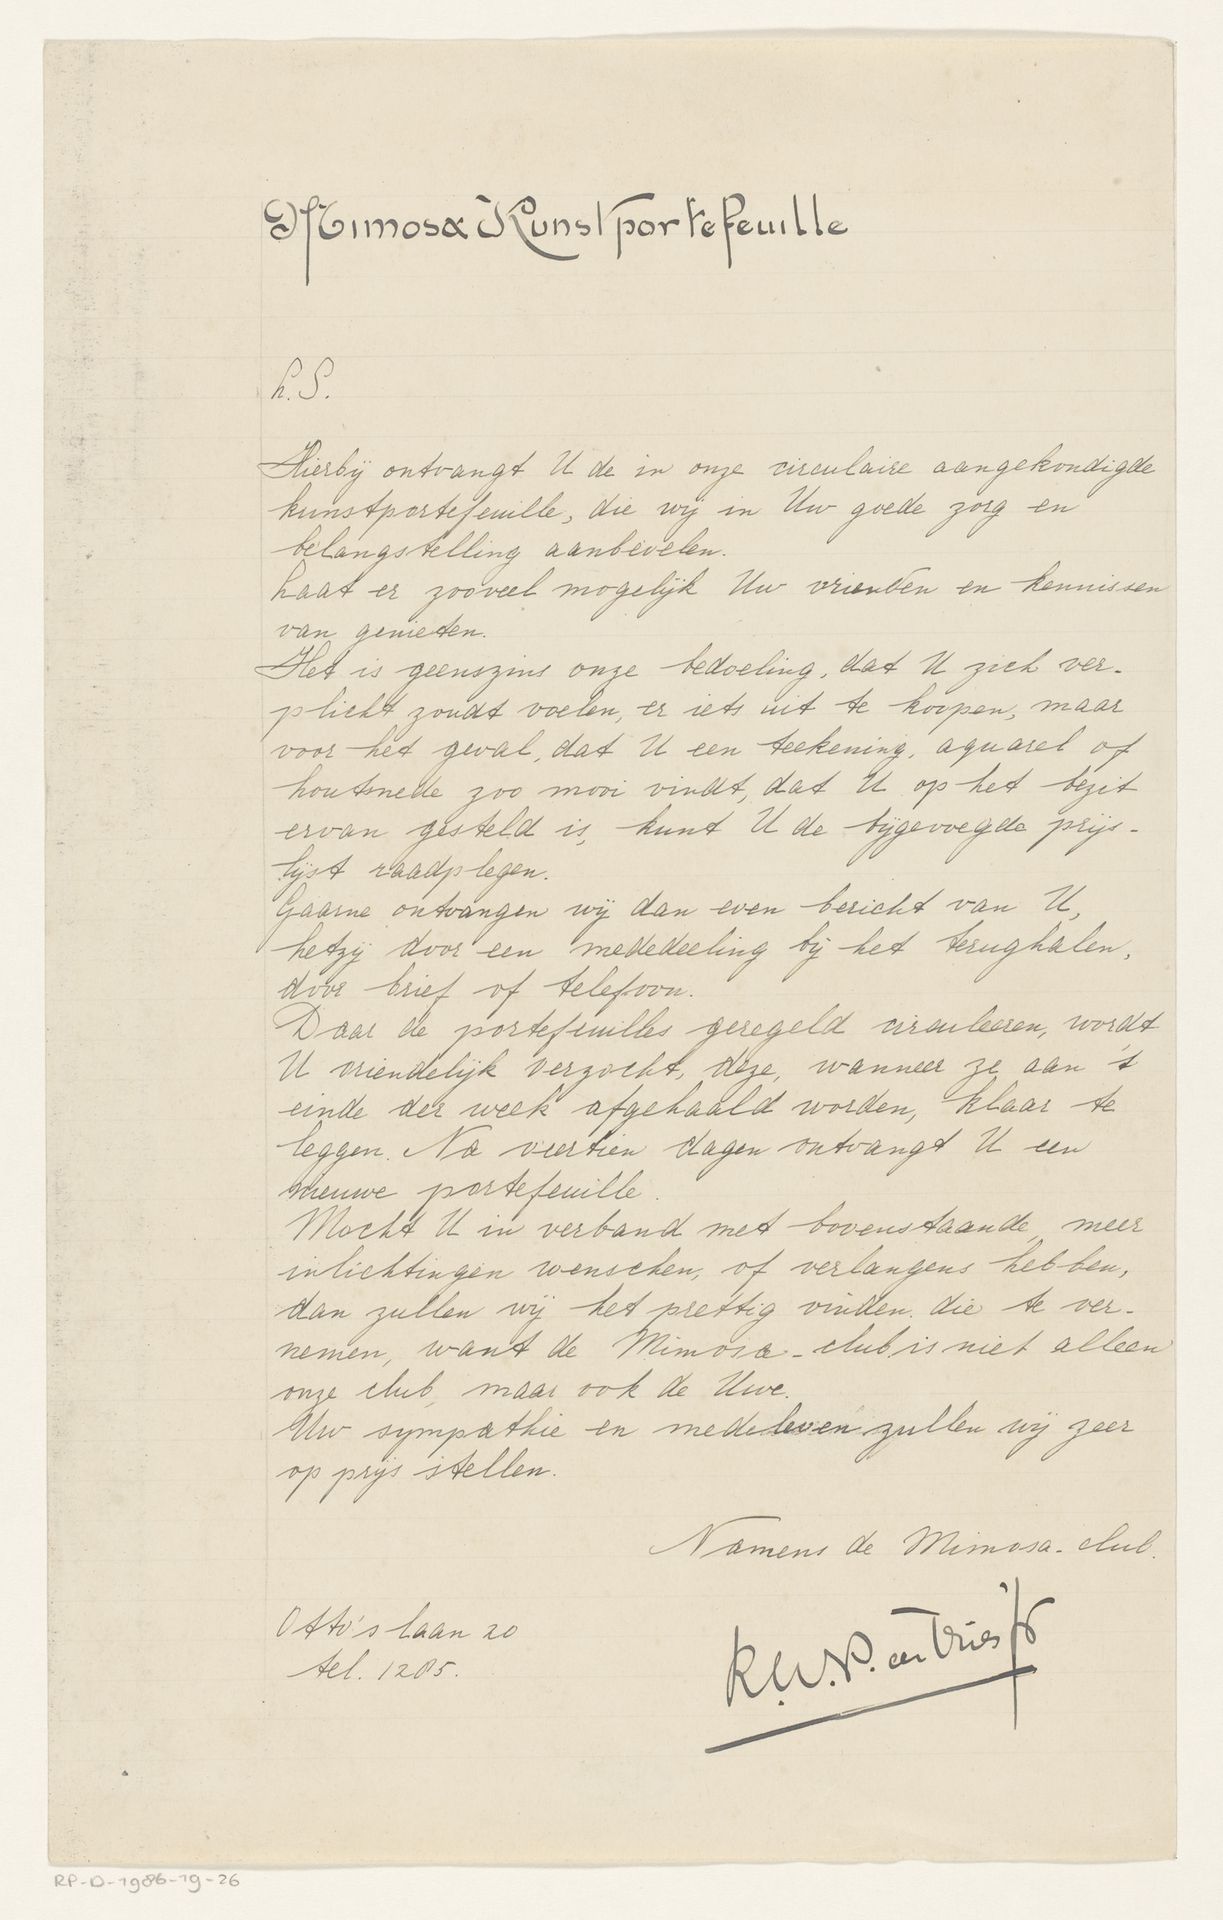 Mimosa Kunstportefeuille
L.S.
Hierbij ontvangt U de in onze circulaire aangekondigde
kunstportefeuille, die wij in Uw goede zorg en
belangstelling aanbevelen.
Laat er zooveel mogelijk Uw vrienden en kennissen
van genieten.
Het is geenszins onze bedoeling, dat U zich ver-
plicht zoudt voelen, er iets uit te koopen, maar
voor het geval, dat U een teekening, aquarel of
houtsnede zoo mooi vindt, dat U op het bezit
ervan gesteld is, kunt U de bijgevoegde prijs-
lijst raadplegen.
Gaarne ontvangen wij dan even bericht van U,
hetzij door een mededeeling bij het terughalen,
door brief of telefoon.
Daar de portefeuilles geregeld circuleeren, wordt
U vriendelijk verzocht, deze, wanneer ze aan 't
einde der week afgehaald worden, klaar te
leggen. Na veertien dagen ontvangt U een
nieuwe portefeuille.
Mocht U in verband met bovenstaande meer
inlichtingen wenschen, of verlangens hebben,
dan zullen wij het prettig vinden die te ver-
nemen, want de Mimosa-club is niet alleen
onze club, maar ook de Uwe.
Uw sympathie en medeleven zullen wij zeer
op prijs stellen.
Namens de Mimosa-club.
Otto's laan 20
tel. 1205.
R.W.P. de Vries Jr
RP-D-1986-19-26